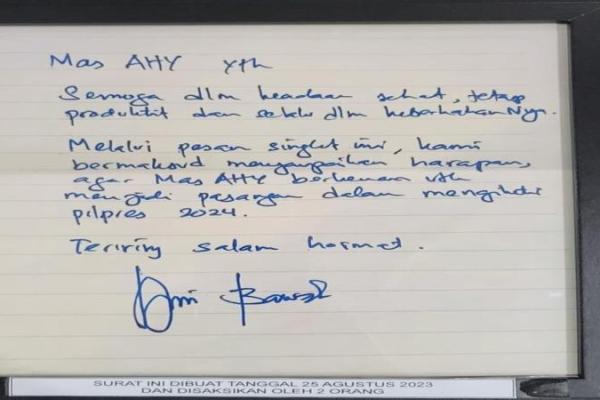 Mas AHY Yth
Semoga dlm keadaan sehat, tetap
produktif dan selalu dlm keberkahanNya.
Melalui pesan singkat ini, kami
bermaksud menyampaikan harapan,
agar Mas AHY berkenan utk
menjadi pasangan dalam mengikuti
pilpres 2024.
Teriring salam hormat.
Anis Baswedan
SURAT INI DIBUAT TANGGAL 25 AGUSTUS 2023
DAN DISAKSIKAN OLEH 2 ORANG